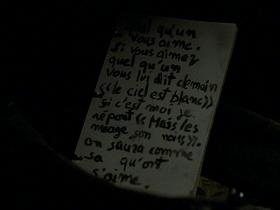 quel qu'un
vous aime.
Si vous aimez
quel qu'un
vous lui dit demain
«le ciel est blanc»
si c'est moi je
répont «Mais les
nuage son noirs».
on saura comme
sa qu'ont
s'aime.